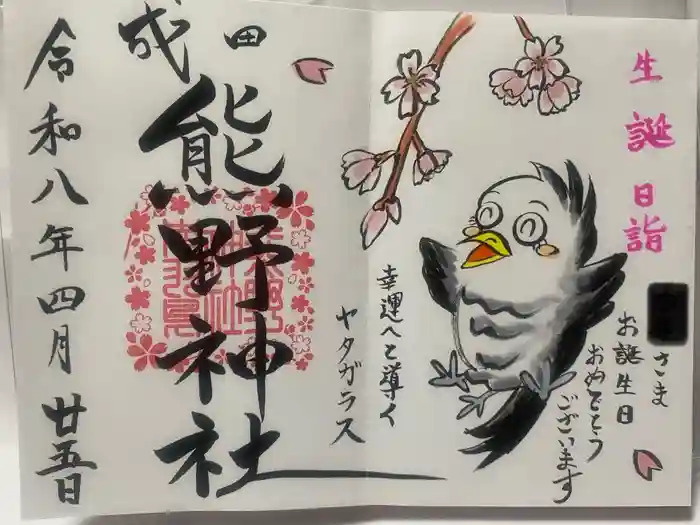 生誕日詣
さま
お誕生日
おめでとう
ございます
幸運へと導く
ヤタガラス
成田
熊野神社
令和八年四月廿五日